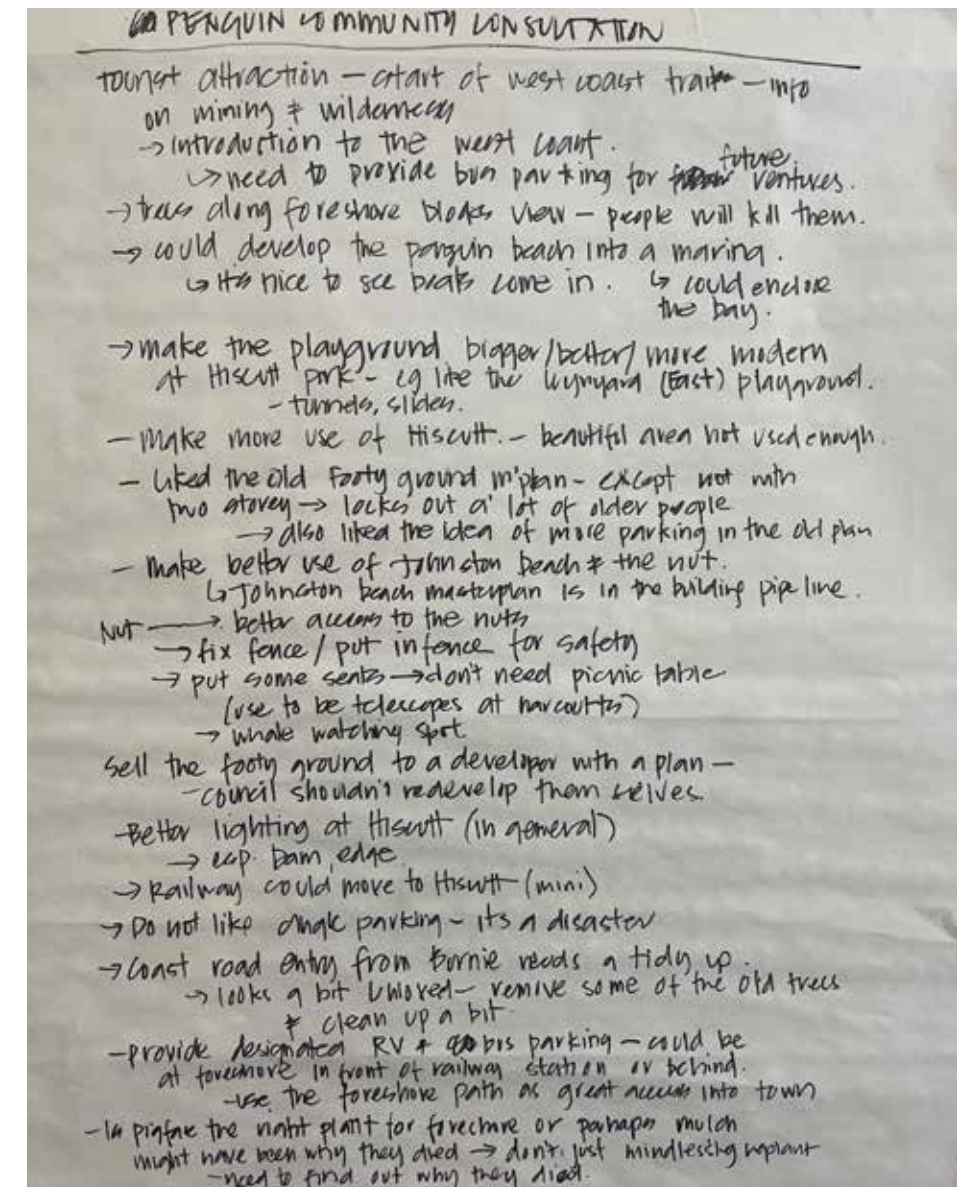 PENGUIN COMMUNITY CONSULTATION
tourist attraction - start of west coast trail - info
on mining & wilderness
→ introduction to the west coast.
↳ need to provide bus parking for future ventures.
→ trees along foreshore blocks view - people will kill them.
→ could develop the penguin beach into a marina.
↳ it's nice to see boats come in. ↳ could enclose
the bay.
→ make the playground bigger/better/more modern
at Hiscutt park - eg like the Wynyard (East) playground.
- tunnels, slides.
- make more use of Hiscutt. - beautiful area not used enough.
- liked the old footy ground m'plan - except not with
two storey → locks out a lot of older people
→ also liked the idea of more parking in the old plan
- make better use of Johnston beach & the nut.
↳ Johnston beach masterplan is in the building pipe line.
Nut → better access to the nuts
→ fix fence / put in fence for safety
→ put some seats → don't need picnic table
(use to be telescopes at harcourts)
→ whale watching spot
Sell the footy ground to a developer with a plan -
- council shouldn't redevelop them selves.
- Better lighting at Hiscutt (in general)
→ esp. Dam edge.
→ Railway could move to Hiscutt (mini)
→ Do not like angle parking - its a disaster
→ Coast road entry from Burnie needs a tidy up.
→ looks a bit unloved - remove some of the old trees
& clean up a bit.
- provide designated RV & bus parking - could be
at foreshore in front of railway station or behind.
- use the foreshore path as great access into town
- the right plant for foreshore or perhaps mulch
might have been why they died → don't just mindlessly replant
- need to find out why they died.